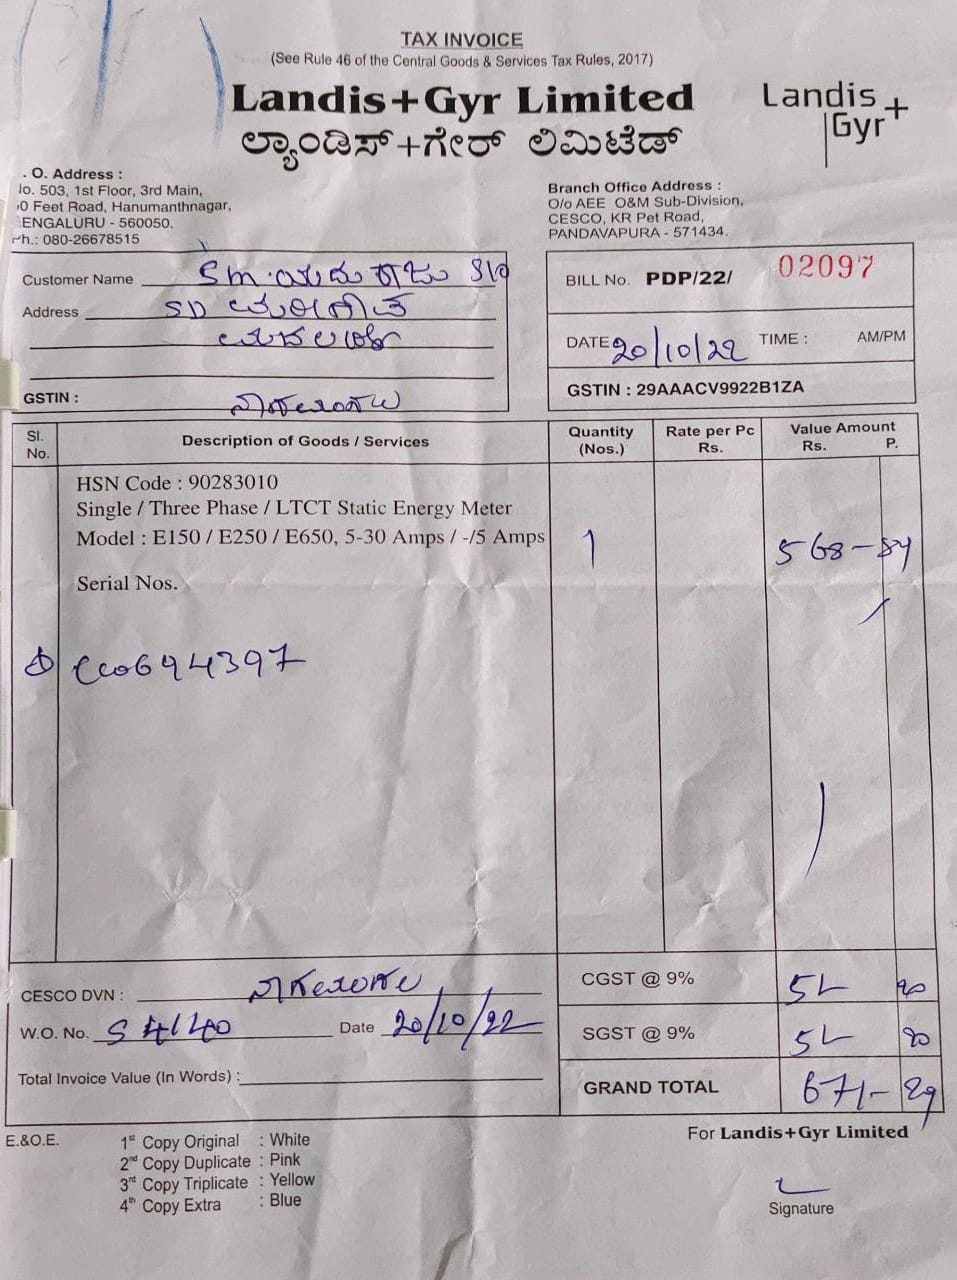 TAX INVOICE
(See Rule 46 of the Central Goods & Services Tax Rules, 2017)
Landis+Gyr Limited
ಲ್ಯಾಂಡಿಸ್+ಗೇರ್ ಲಿಮಿಟೆಡ್
Landis
Gyr+
. O. Address :
No. 503, 1st Floor, 3rd Main,
0 Feet Road, Hanumanthnagar,
ENGALURU - 560050.
Ph.: 080-26678515
Branch Office Address :
O/o AEE O&M Sub-Division,
CESCO, KR Pet Road,
PANDAVAPURA - 571434.
Customer Name
Address
GSTIN :
BILL No. PDP/22/ 02097
DATE 20/10/22 TIME : AM/PM
GSTIN : 29AAACV9922B1ZA
Sl. No. Description of Goods / Services Quantity (Nos.) Rate per Pc Rs. Value Amount Rs. P.
HSN Code : 90283010
Single / Three Phase / LTCT Static Energy Meter
Model : E150 / E250 / E650, 5-30 Amps / -/5 Amps 1 568-84
Serial Nos.
694397
CESCO DVN :
W.O. No. Date 20/10/22
Total Invoice Value (In Words) :
CGST @ 9%
SGST @ 9%
GRAND TOTAL 671-29
E.&O.E.
1st Copy Original : White
2nd Copy Duplicate : Pink
3rd Copy Triplicate : Yellow
4th Copy Extra : Blue
For Landis+Gyr Limited
Signature